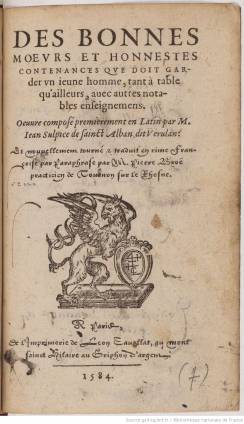 DES BONNES
MOEVRS ET HONNESTES
CONTENANCES QVE DOIT GAR-
der vn ieune homme, tant à table
qu'ailleurs, auec autres nota-
bles enseignemens.
Oeuure composé premierement en Latin par M.
Iean Sulpice de sainct Alban, dit Verulan:
Et nouuellement tourné & traduit en rime Fran-
çoise par Paraphrase par M. Pierre Broë
practicien de Tournon sur le Rhosne.
A Paris
De l'Imprimerie de Leon Cauellat, au mont
sainct Hilaire au Griphon d'argent.
1584.
(7)
Source gallica.bnf.fr / Bibliothèque nationale de France